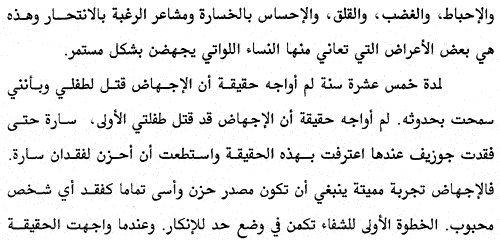 والإحباط، والغضب، والقلق، والإحساس بالخسارة ومشاعر الرغبة بالانتحار وهذه
هي بعض الأعراض التي تعاني منها النساء اللواتي يجهضن بشكل مستمر.
لمدة خمس عشرة سنة لم أواجه حقيقة أن الإجهاض قتل لطفلي وبأنني
سمحت بحدوثه. لم أواجه حقيقة أن الإجهاض قد قتل طفلتي الأولى، سارة حتى
فقدت جوزيف عندها اعترفت بهذه الحقيقة واستطعت أن أحزن لفقدان سارة.
فالإجهاض تجربة مميتة ينبغي أن تكون مصدر حزن وأسى تماما كفقد أي شخص
محبوب. الخطوة الأولى للشفاء تكمن في وضع حد للإنكار. وعندما واجهت الحقيقة